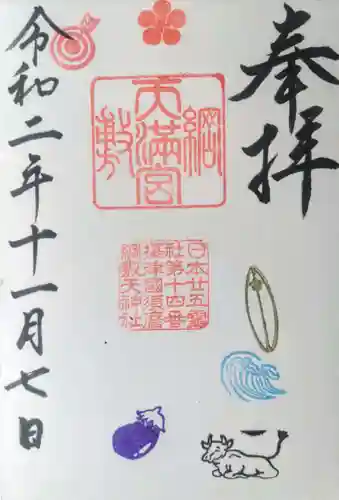 奉拝
綱敷天満宮
日本廿五霊
社第十四番
摂津國須磨
綱敷天神社
令和二年十一月七日